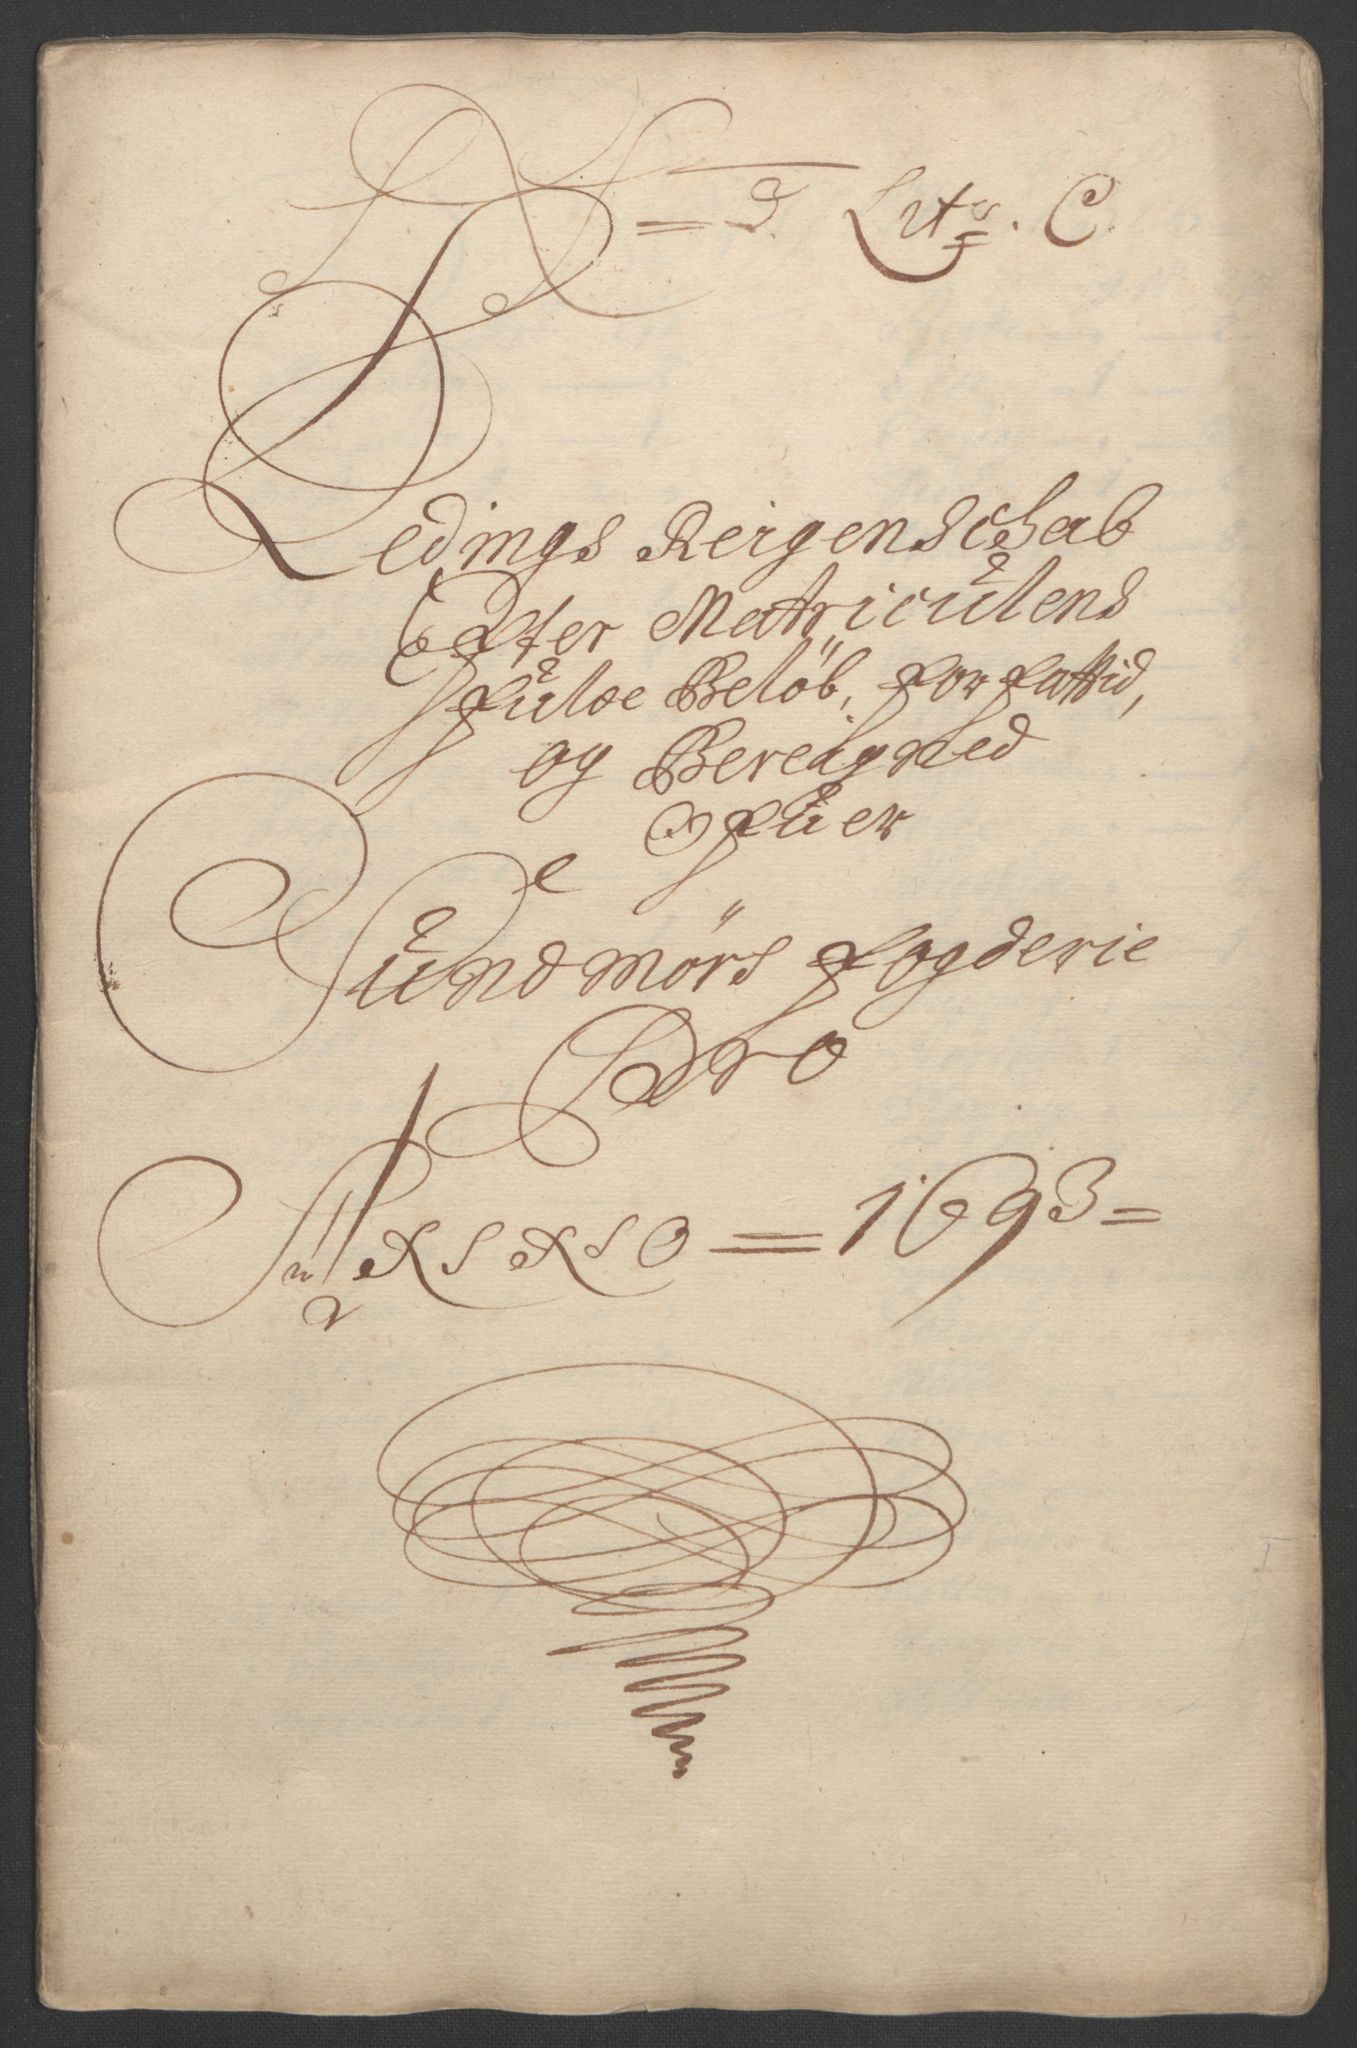 N = 3. Litr. C.
Ledings Reigenschab
Epter Matriculens
fulde Beløb, forfattid,
og Bereigned
Ofuer
Sundmørs fogderie
Pro
Anno = 1693 =